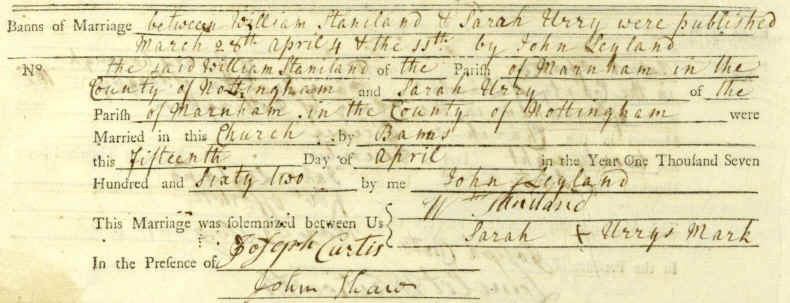 Banns of Marriage between William Staniland & Sarah Urry were published
March 28th April 4 & the 11th by John Leyland
No. the said William Staniland of the Parish of Marnham in the
County of Nottingham and Sarah Urry of the
Parish of Marnham in the County of Nottingham were
Married in this Church by Banns
this fifteenth Day of April in the Year One Thousand Seven
Hundred and Sixty two by me John Leyland
This Marriage was solemnized between Us W Staniland
Sarah X Urrys Mark
In the Presence of Joseph Curtis
John Shaw